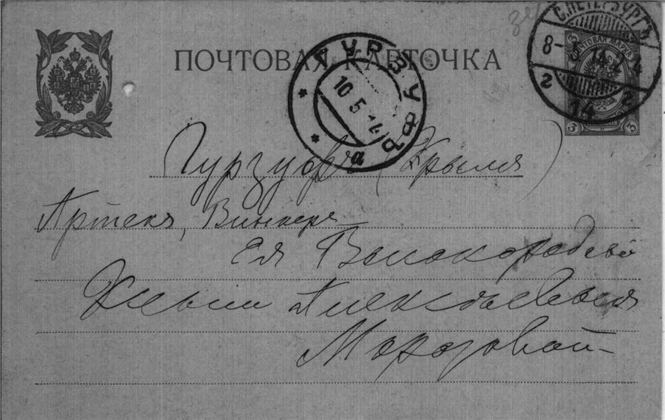 ПОЧТОВАЯ КАРТОЧКА
С.ПЕТЕРБУРГЪ
8-5 14
14
ГУРЗУФЪ
10 5 14
а
Гурзуфъ (Крымъ)
Артекъ, Виннеръ
Ея Высокородію
Ксеніи Алексѣевнѣ
Морозовой